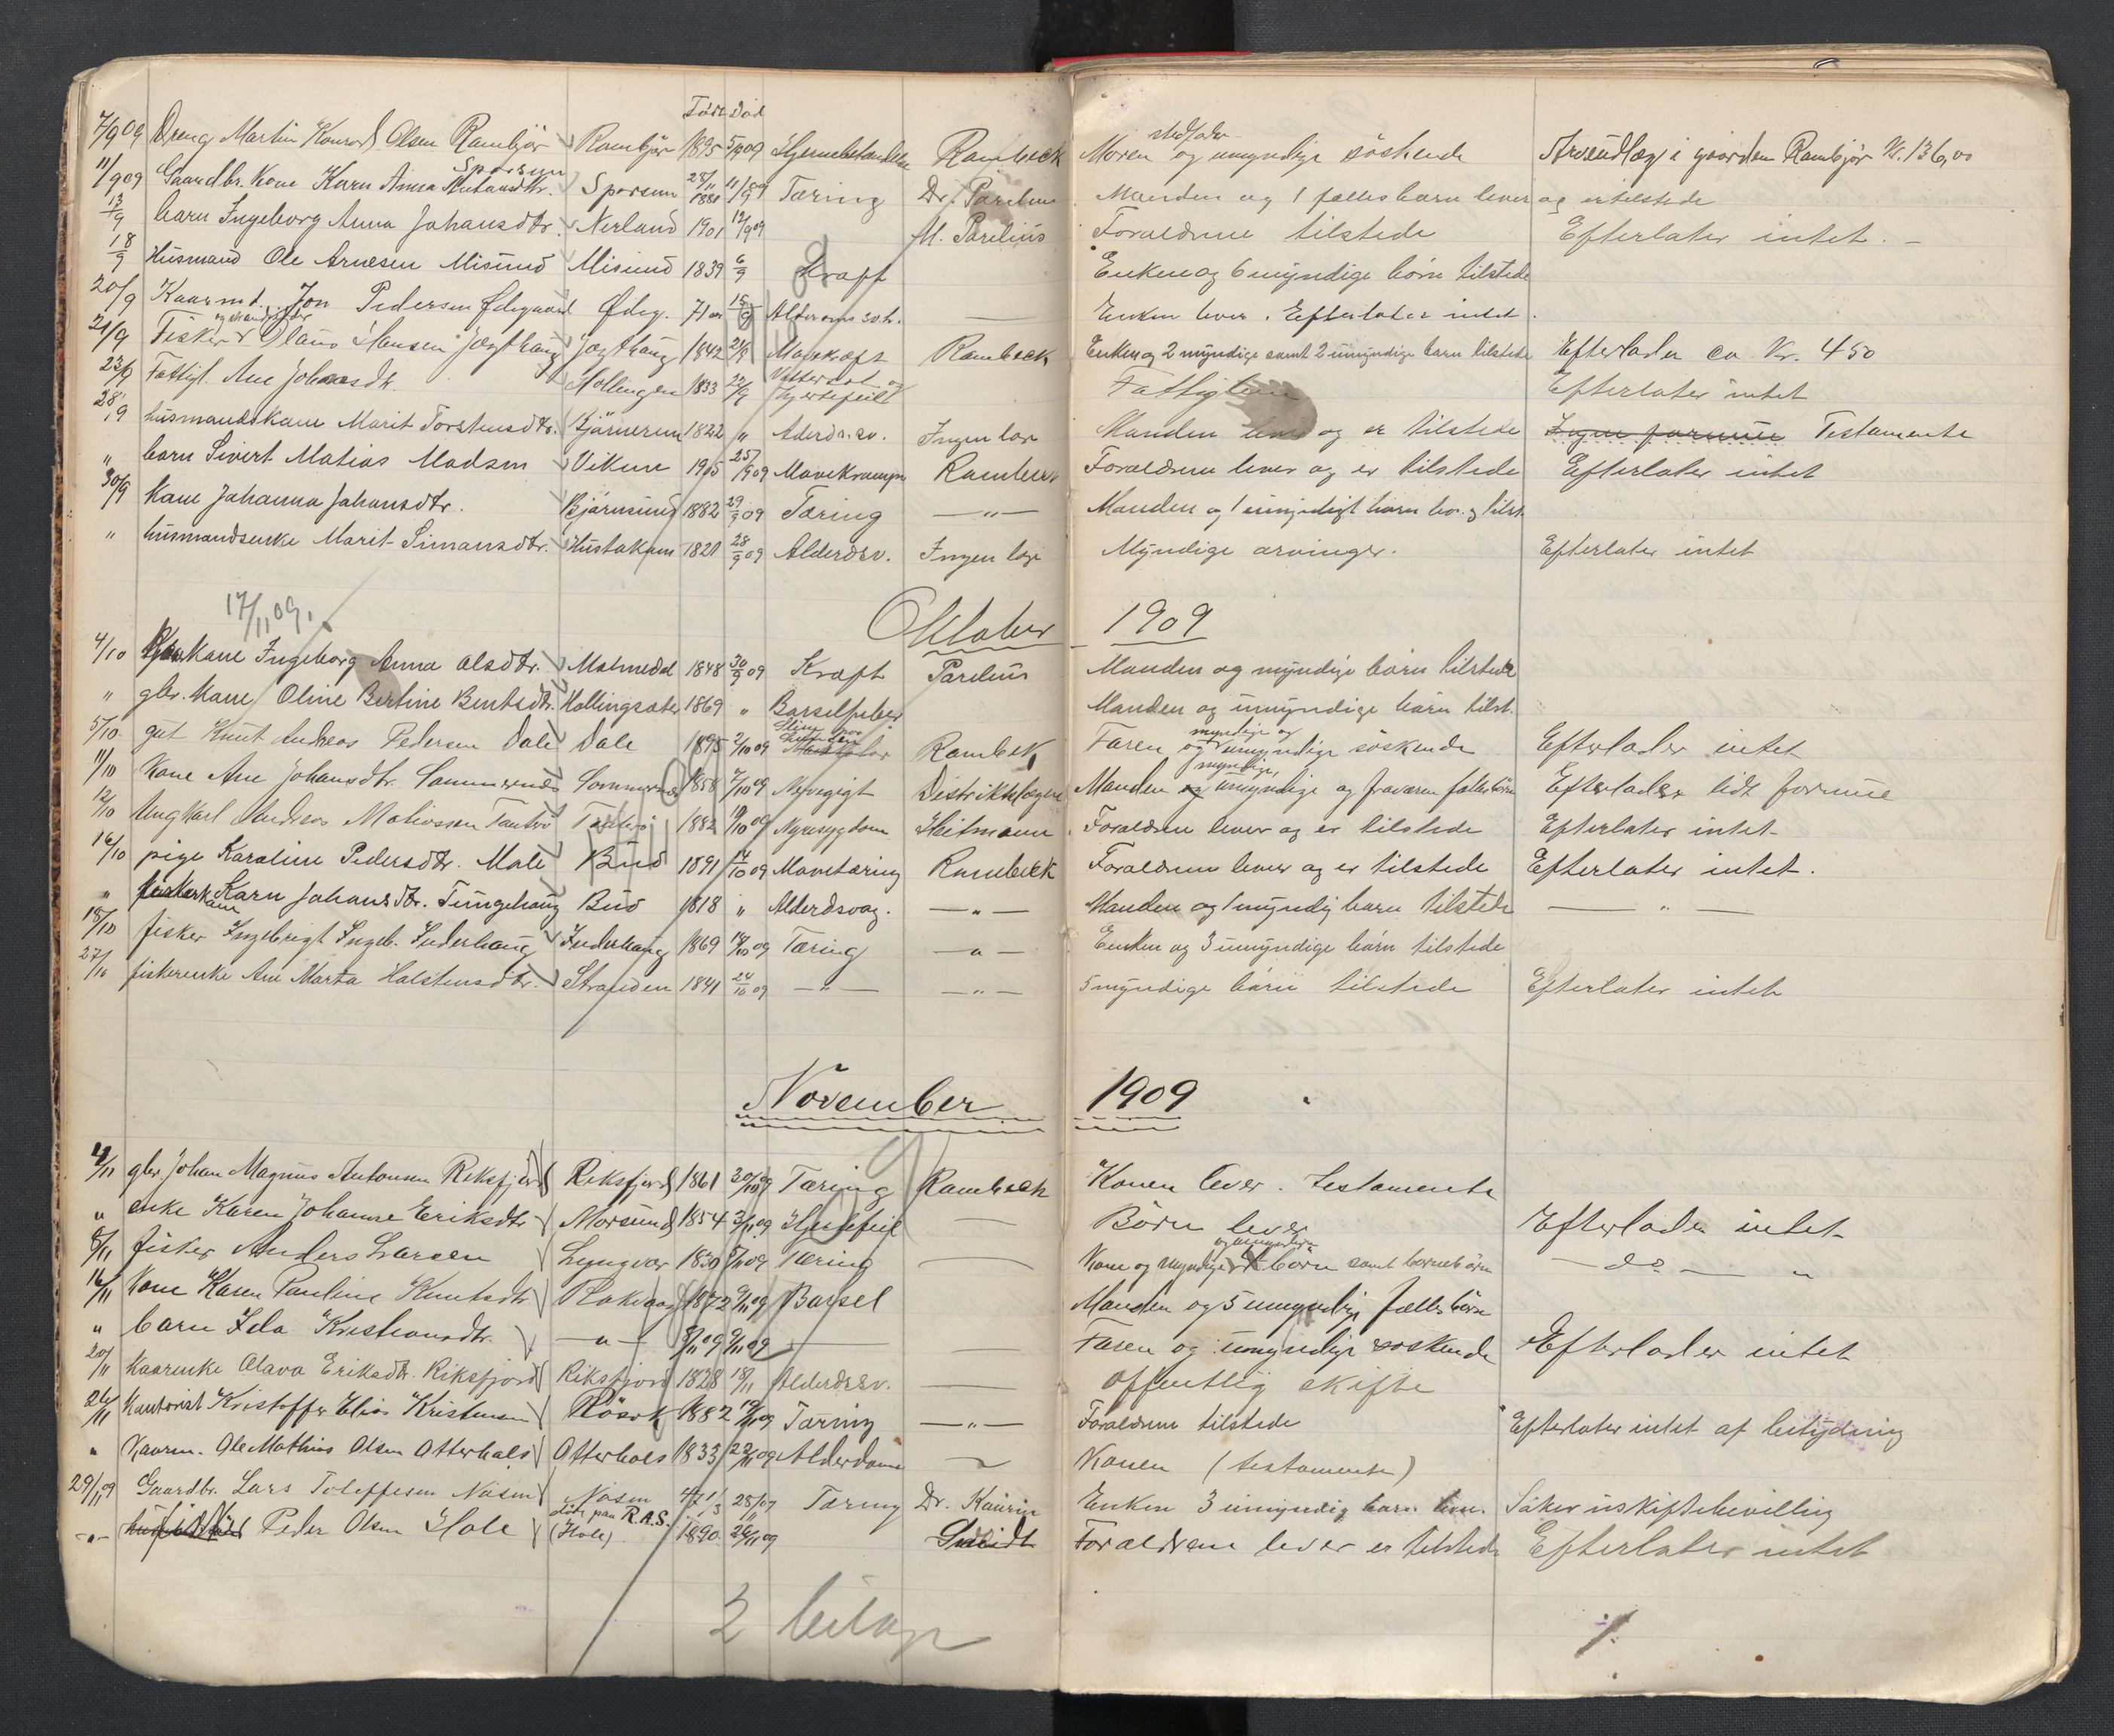 Født Død
7/9 09 Dreng Martin Konrad Olsen Rambjør Rambjør 1895 5/9 09 Hjernebetændelse Rambeck Moren stedfader og umyndige söskende Arveudlæg i gaarden Rambjør Kr. 136,00
11/9 09 Gaardbr. Kone Karn Anna Antonsdtr. Sporsem Sporsem 28/11 1881 11/9 09 Tæring Dr. Parelius Manden og 1 fælles barn lever og er tilstede
13/9 barn Ingeborg Anna Johansdtr. Nerland 1901 12/9 09 M. Parelius Forældrene tilstede Efterlater intet. –
18/9 Husmand Ole Arnesen Misund Misund 1839 6/9 Kræft Enken og 6 myndige börn tilstede
20/9 Kaarmd. Jon Pedersen Ødegaard Ødeg. 71 aar 15/9 Alderoms sv. h. — Enken lever. Efterlater intet.
21/9 Fisker Olaus Hansen Jægthaug Jægthaug 1842 21/9 Mavekræft Rambeck Enken og 2 myndige samt 2 umyndige barn tilstede Efterlader ca. Kr. 450
23/9 Fattigl. Ane Johansdtr. Hollingen 1833 22/9 Vattersot og Hjertefeil Fattiglem Efterlater intet
28/9 husmandskane Marit Torstensdtr. Bjørnerem 1822 " Alderds. sv. Ingen læge Manden lever og er tilstede Ingen formue Testamente
" barn Sivert Matias Madsen Vikene 1905 25/9 09 Mavekrampe Rambeck Forældrene lever og er tilstede Efterlater intet
30/9 Kane Johanna Johansdtr. Bjørnsund 1882 29/9 09 Tæring — " — Manden og 1 umyndigt barn lev. og tilst.
" husmandsenke Marit Simansdtr. Hustakam 1821 28/9 09 Alderdsv. Ingen læge Myndige arvinger. Efterlater intet
17/11 09.
Oktober 1909
4/10 Kane Ingeborg Anna Olsdtr. Malmedal 1848 30/9 09 Kræft Parelius Manden og myndige börn tilstede
" gbr. Kane Oline Bertine Bentsdtr. Hollingsæter 1869 " Barselfeber Manden og umyndige börn tilst.
5/10 gut Knut Andreas Pedersen Dale Dale 1895 2/10 09 Rambek Faren og myndige og umyndige söskende Efterlader intet
11/10 Kone Ane Johansdtr. Sommernes Sommernes 1858 7/10 09 Nyregigt Distriktslægen Manden myndige, umyndige og fraværen. fællesbörn Efterlader lidt formue
12/10 Ungkarl Andreas Matiassen Tautrö Tautrö 1882 10/10 09 Nyresygdom Heitmann Forældrene lever og er tilstede Efterlater intet
16/10 pige Karoline Pedersdtr. Male Bud 1891 14/10 09 Mavetæring Rambeck Forældrene lever og er tilstede Efterlater intet.
" fisker kane Karn Johansdtr. Tungehaug Bud 1818 " Alderdsvag. — " — Manden og 1 myndig barn tilstede — " —
18/10 fisker Ingebregt Ingeb. Inderhaug Inderhaug 1869 14/10 09 Tæring — " — Enken og 3 umyndige börn tilstede
27/10 fiskerenke Ane Marta Halstensdtr. Stranden 1841 24/10 09 — " — — " — 5 myndige börn tilstede Efterlater intet
November 1909
4/11 gbr. Johan Magnus Antonsen Riksfjord Riksfjord 1861 30/10 09 Tæring Rambeck Konen lever. Testamente
" enke Karen Johanne Eriksdtr Morsund 1854 2/11 09 Hjertefeil — Börn lever Efterlader intet
8/11 fisker Anders Larsen Lyngvær 1830 5/11 09 Tæring — Kone og myndige börn samt barnebörn — do — "
16/11 Kone Karen Pauline Knutsdtr 1872 9/11 09 Barsel Manden og 5 umyndige fællesbörn
" barn Ida Kristiansdtr. — " — 5/11 09 9/11 09 — — Faren og umyndige söskende Efterlader intet
20/11 Kaarenke Olava Eriksdtr. Riksfjord Riksfjord 1828 18/11 Alderdsv. — offentlig skifte
26/11 Kontorist Kristoffer Elias Kristensen Rösok 1882 19/11 09 Tæring — " — Forældrene tilstede Efterlater intet af betydning
" Kaarm. Ole Mathias Olsen Otterhals Otterhals 1833 22/11 09 Alderdoms — Konen (testamente)
29/11 09 Gaardbr. Lars Toleffesen Nosen Nosen 28/11 Tæring Dr. Kaurin Enken 3 umyndig barn lev. Søker uskiftebevilling
— " — Peder Olsen Hole döde paa R.A.S. (Hole) 1890 26/11 09 Forældrene lever er tilstede Efterlater intet
2 bilag